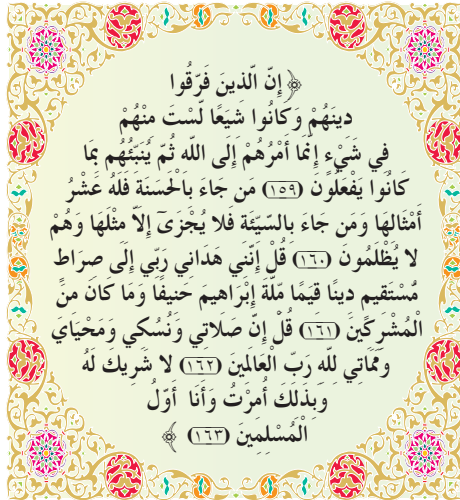 ﴿إِنَّ الَّذِينَ فَرَّقُوا
دِينَهُمْ وَكَانُوا شِيَعًا لَّسْتَ مِنْهُمْ
فِي شَيْءٍ إِنَّمَا أَمْرُهُمْ إِلَى اللّهِ ثُمَّ يُنَبِّئُهُم بِمَا
كَانُوا يَفْعَلُونَ (١٥٩) مَن جَاءَ بِالْحَسَنَةِ فَلَهُ عَشْرُ
أَمْثَالِهَا وَمَن جَاءَ بِالسَّيِّئَةِ فَلا يُجْزَىَ إِلاَّ مِثْلَهَا وَهُمْ
لا يُظْلَمُونَ (١٦٠) قُلْ إِنَّنِي هَدَانِي رَبِّي إِلَى صِرَاطٍ
مُّسْتَقِيمٍ دِينًا قِيَمًا مِّلَّةَ إِبْرَاهِيمَ حَنِيفًا وَمَا كَانَ مِنَ
الْمُشْرِكِينَ (١٦١) قُلْ إِنَّ صَلاتِي وَنُسُكِي وَمَحْيَايَ
وَمَمَاتِي لِلّهِ رَبِّ الْعَالَمِينَ (١٦٢) لا شَرِيكَ لَهُ
وَبِذَلِكَ أُمِرْتُ وَأَنَا أَوَّلُ
الْمُسْلِمِينَ (١٦٣) ﴾